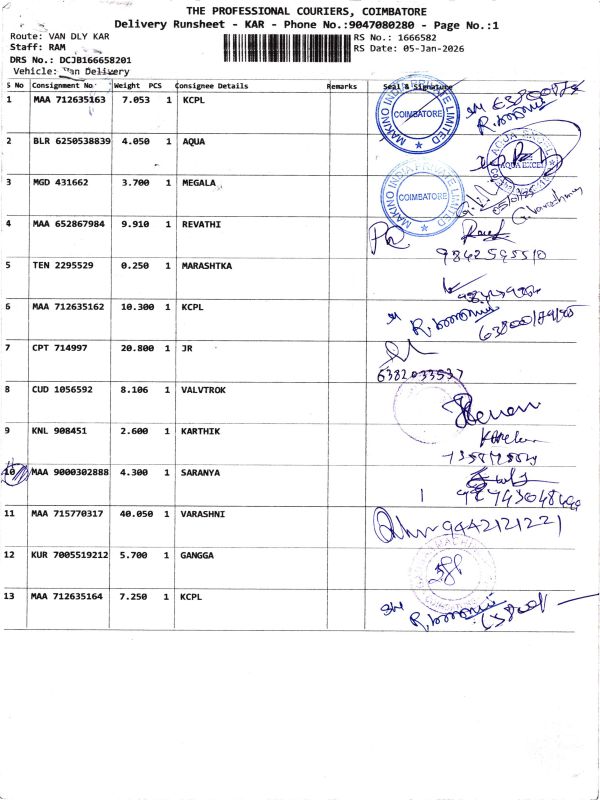 THE PROFESSIONAL COURIERS, COIMBATORE
Delivery Runsheet - KAR - Phone No.:9047080280 - Page No.:1
Route: VAN DLY KAR
RS No.: 1666582
Staff: RAM
RS Date: 05-Jan-2026
DRS No.: DCJB166658201
Vehicle: Van Delivery
S No Consignment No Weight PCS Consignee Details Remarks Seal & Signature
1 MAA 712635163 7.053 1 KCPL
MAKINO INDIA PRIVATE LIMITED
COIMBATORE
2 BLR 6250538839 4.050 1 AQUA
AQUA EXCEL
3 MGD 431662 3.700 1 MEGALA
MAKINO INDIA PRIVATE LIMITED
COIMBATORE
4 MAA 652867984 9.910 1 REVATHI
9842595510
5 TEN 2295529 0.250 1 MARASHTKA
6 MAA 712635162 10.300 1 KCPL
7 CPT 714997 20.800 1 JR
6382033537
8 CUD 1056592 8.106 1 VALVTROK
9 KNL 908451 2.600 1 KARTHIK
10 MAA 9000302888 4.300 1 SARANYA
11 MAA 715770317 40.050 1 VARASHNI
9442121221
12 KUR 7005519212 5.700 1 GANGGA
13 MAA 712635164 7.250 1 KCPL